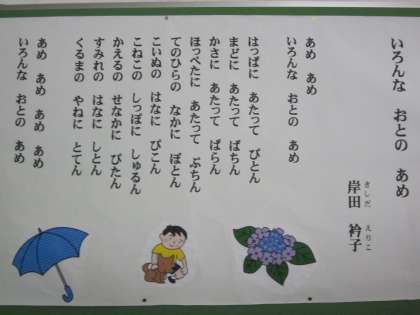 いろんな おとの あめ
岸田 衿子
きしだ えりこ
あめ あめ
いろんな おとの あめ
はっぱに あたって ぴとん
まどに あたって ぱちん
かさに あたって ぱらん
ほっぺたに あたって ぷちん
てのひらの なかに ぽとん
こいぬの はなに ぴこん
こねこの しっぽに しゅるん
かえるの せなかに ぴたん
すみれの はなに しとん
くるまの やねに とてん
あめ あめ あめ あめ
いろんな おとの あめ